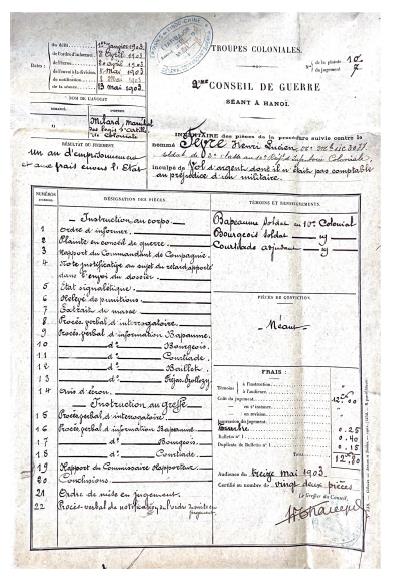 TROUPES COLONIALES.
Nos de la plainte 10
du jugement 7
2me CONSEIL DE GUERRE
SÉANT À HANOÏ.
Dates :
du délit 1er janvier 1903
de l'ordre d'informer 8 avril 1903
20 avril 1903
Mai 1903
Mai 1903
de la séance 13 mai 1903
NOM DE L'AVOCAT
Milard, maréchal
des logis d'artill
Coloniale
RÉSULTAT DU JUGEMENT
un an d'emprisonnement
et aux frais envers l'État
INVENTAIRE des pièces de la procédure suivie contre le
nommé Henri Lucien
soldat de 2e classe au 10e Régt d'Infanterie Coloniale
inculpé de Vol d'argent dont il n'était pas comptable
au préjudice d'un militaire.
NUMÉROS
DÉSIGNATION DES PIÈCES.
TÉMOINS ET RENSEIGNEMENTS.
Instruction au corps
1 Ordre d'informer
2 Plainte en conseil de guerre
3 Rapport du Commandant de Compagnie
4 Note justificative au sujet du retard apporté
dans l'envoi du dossier
5 État signalétique
6 Relevé de punitions
7 Extrait de masse
8 Procès verbal d'interrogatoire
9 Procès verbal d'information Bapaume
10 do Bourgeois
11 do Courtiade
12 do Baillet
13 do
14 Avis d'écrou
Instruction au greffe
15 Procès verbal d'interrogatoire
16 Procès verbal d'information Bapaume
17 do Bourgeois
18 do Courtiade
19 Rapport du Commissaire Rapporteur
20 Conclusions
21 Ordre de mise en jugement
22 Procès-verbal de notification de l'ordre de mise en
jugement
Bapeaume soldat au 10e Colonial
Bourgeois soldat
Courtiade adjudant
PIÈCES DE CONVICTION.
Néant
FRAIS :
Témoins à l'instruction
à l'audience
Coût du jugement 12 00
en 1re instance
en révision
Timbre 0.25
Bulletin no 1 0.40
Duplicata du Bulletin no 1 0.15
Total 12 80
Audience du treize mai 1903
Certifié au nombre de vingt deux pièces
Le Greffier du Conseil,